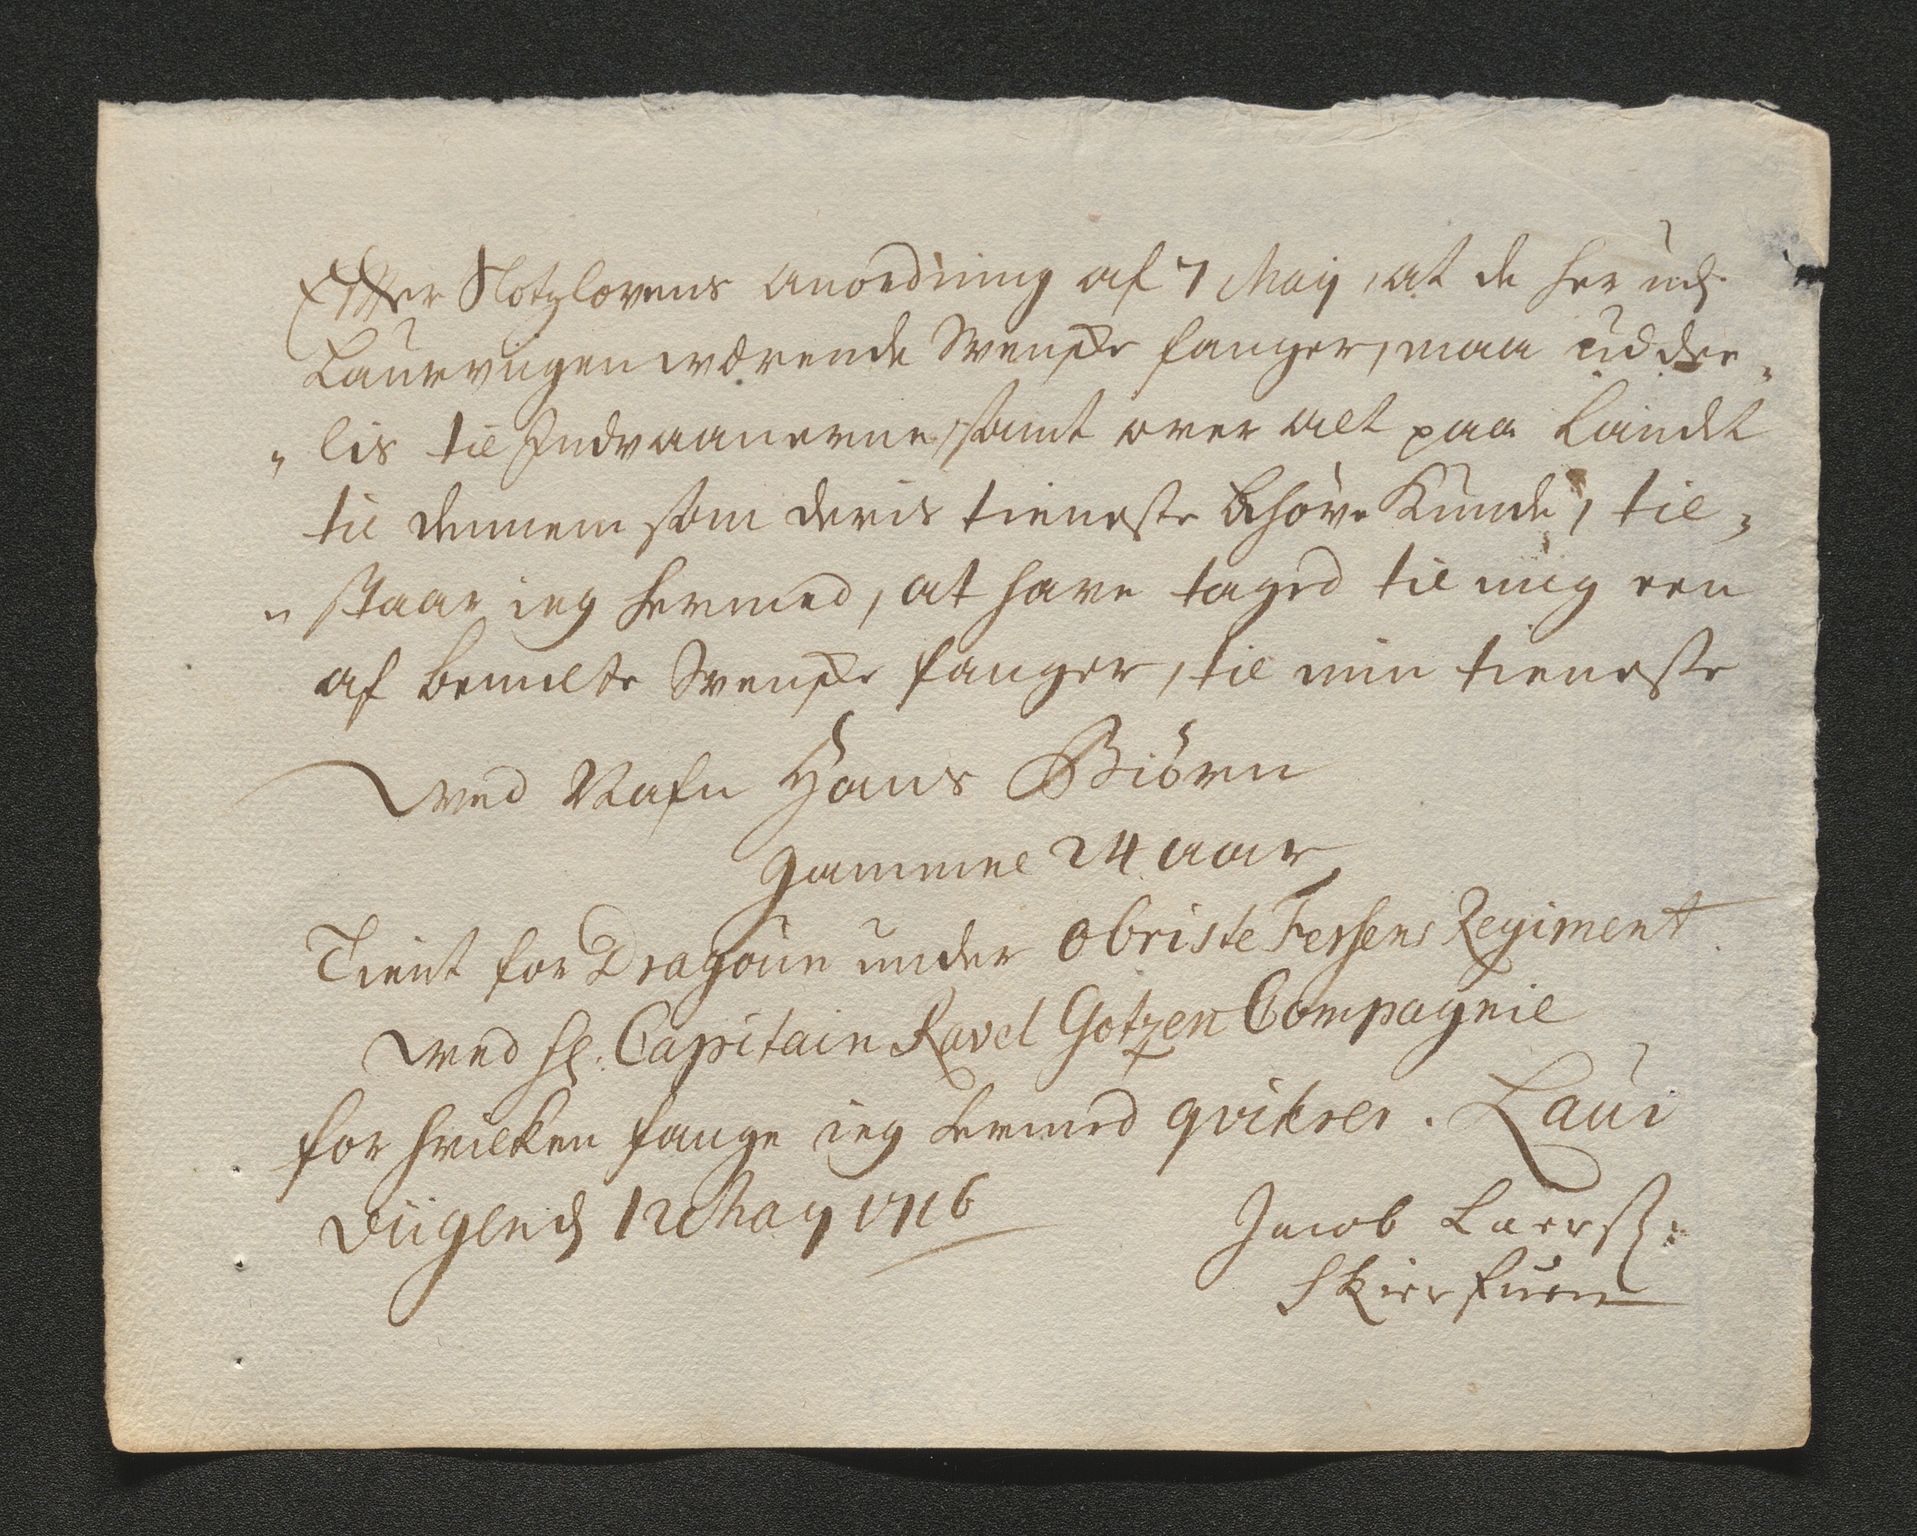 Efter Slotzlovens anordning af 7 Maÿ, at de her udj
Laurvigen værende Svenske fanger, maa uddee„
„lis til Indvaanerne, samt over alt paa Landet
til dennem som deris tieneste behøve Kunde, til„
„staar ieg hermed, at have taged til mig een
af bemelte Svenske fanger, til min tieneste
ved Nafn Hans Biörn
gammel 24 aar
Tient for Dragoun under Obriste Fersens Regiment
ved Hr. Capitain Ravel Gotzen Compagnie
for hvilken fange ieg hermed qviterer. Laur
viigen d 12 May 1716
Jacob Laerss:
Skierfuen